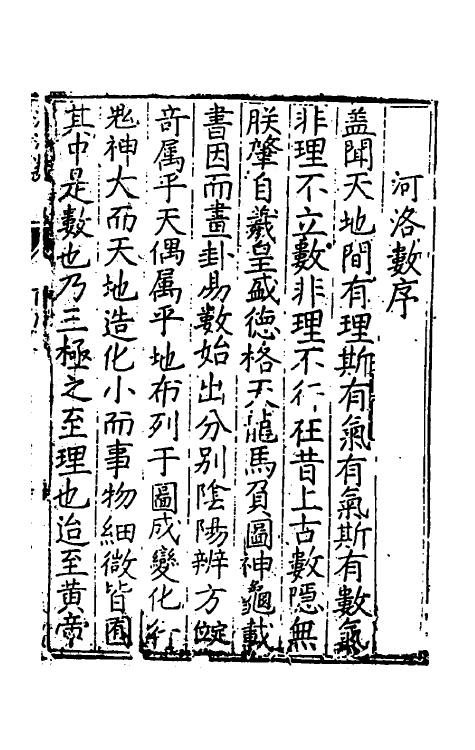 河洛數序
蓋聞天地間有理斯有氣有氣斯有數氣
非理不立數非理不行往昔上古數隱無
朕肇自羲皇盛德格天龍馬負圖神龜載
書因而畫卦易數始出分别陰陽辨方定
竒属乎天偶属乎地布列于圖成變化行
鬼神大而天地造化小而事物細微皆囿
其中是數也乃三極之至理也迨至黄帝